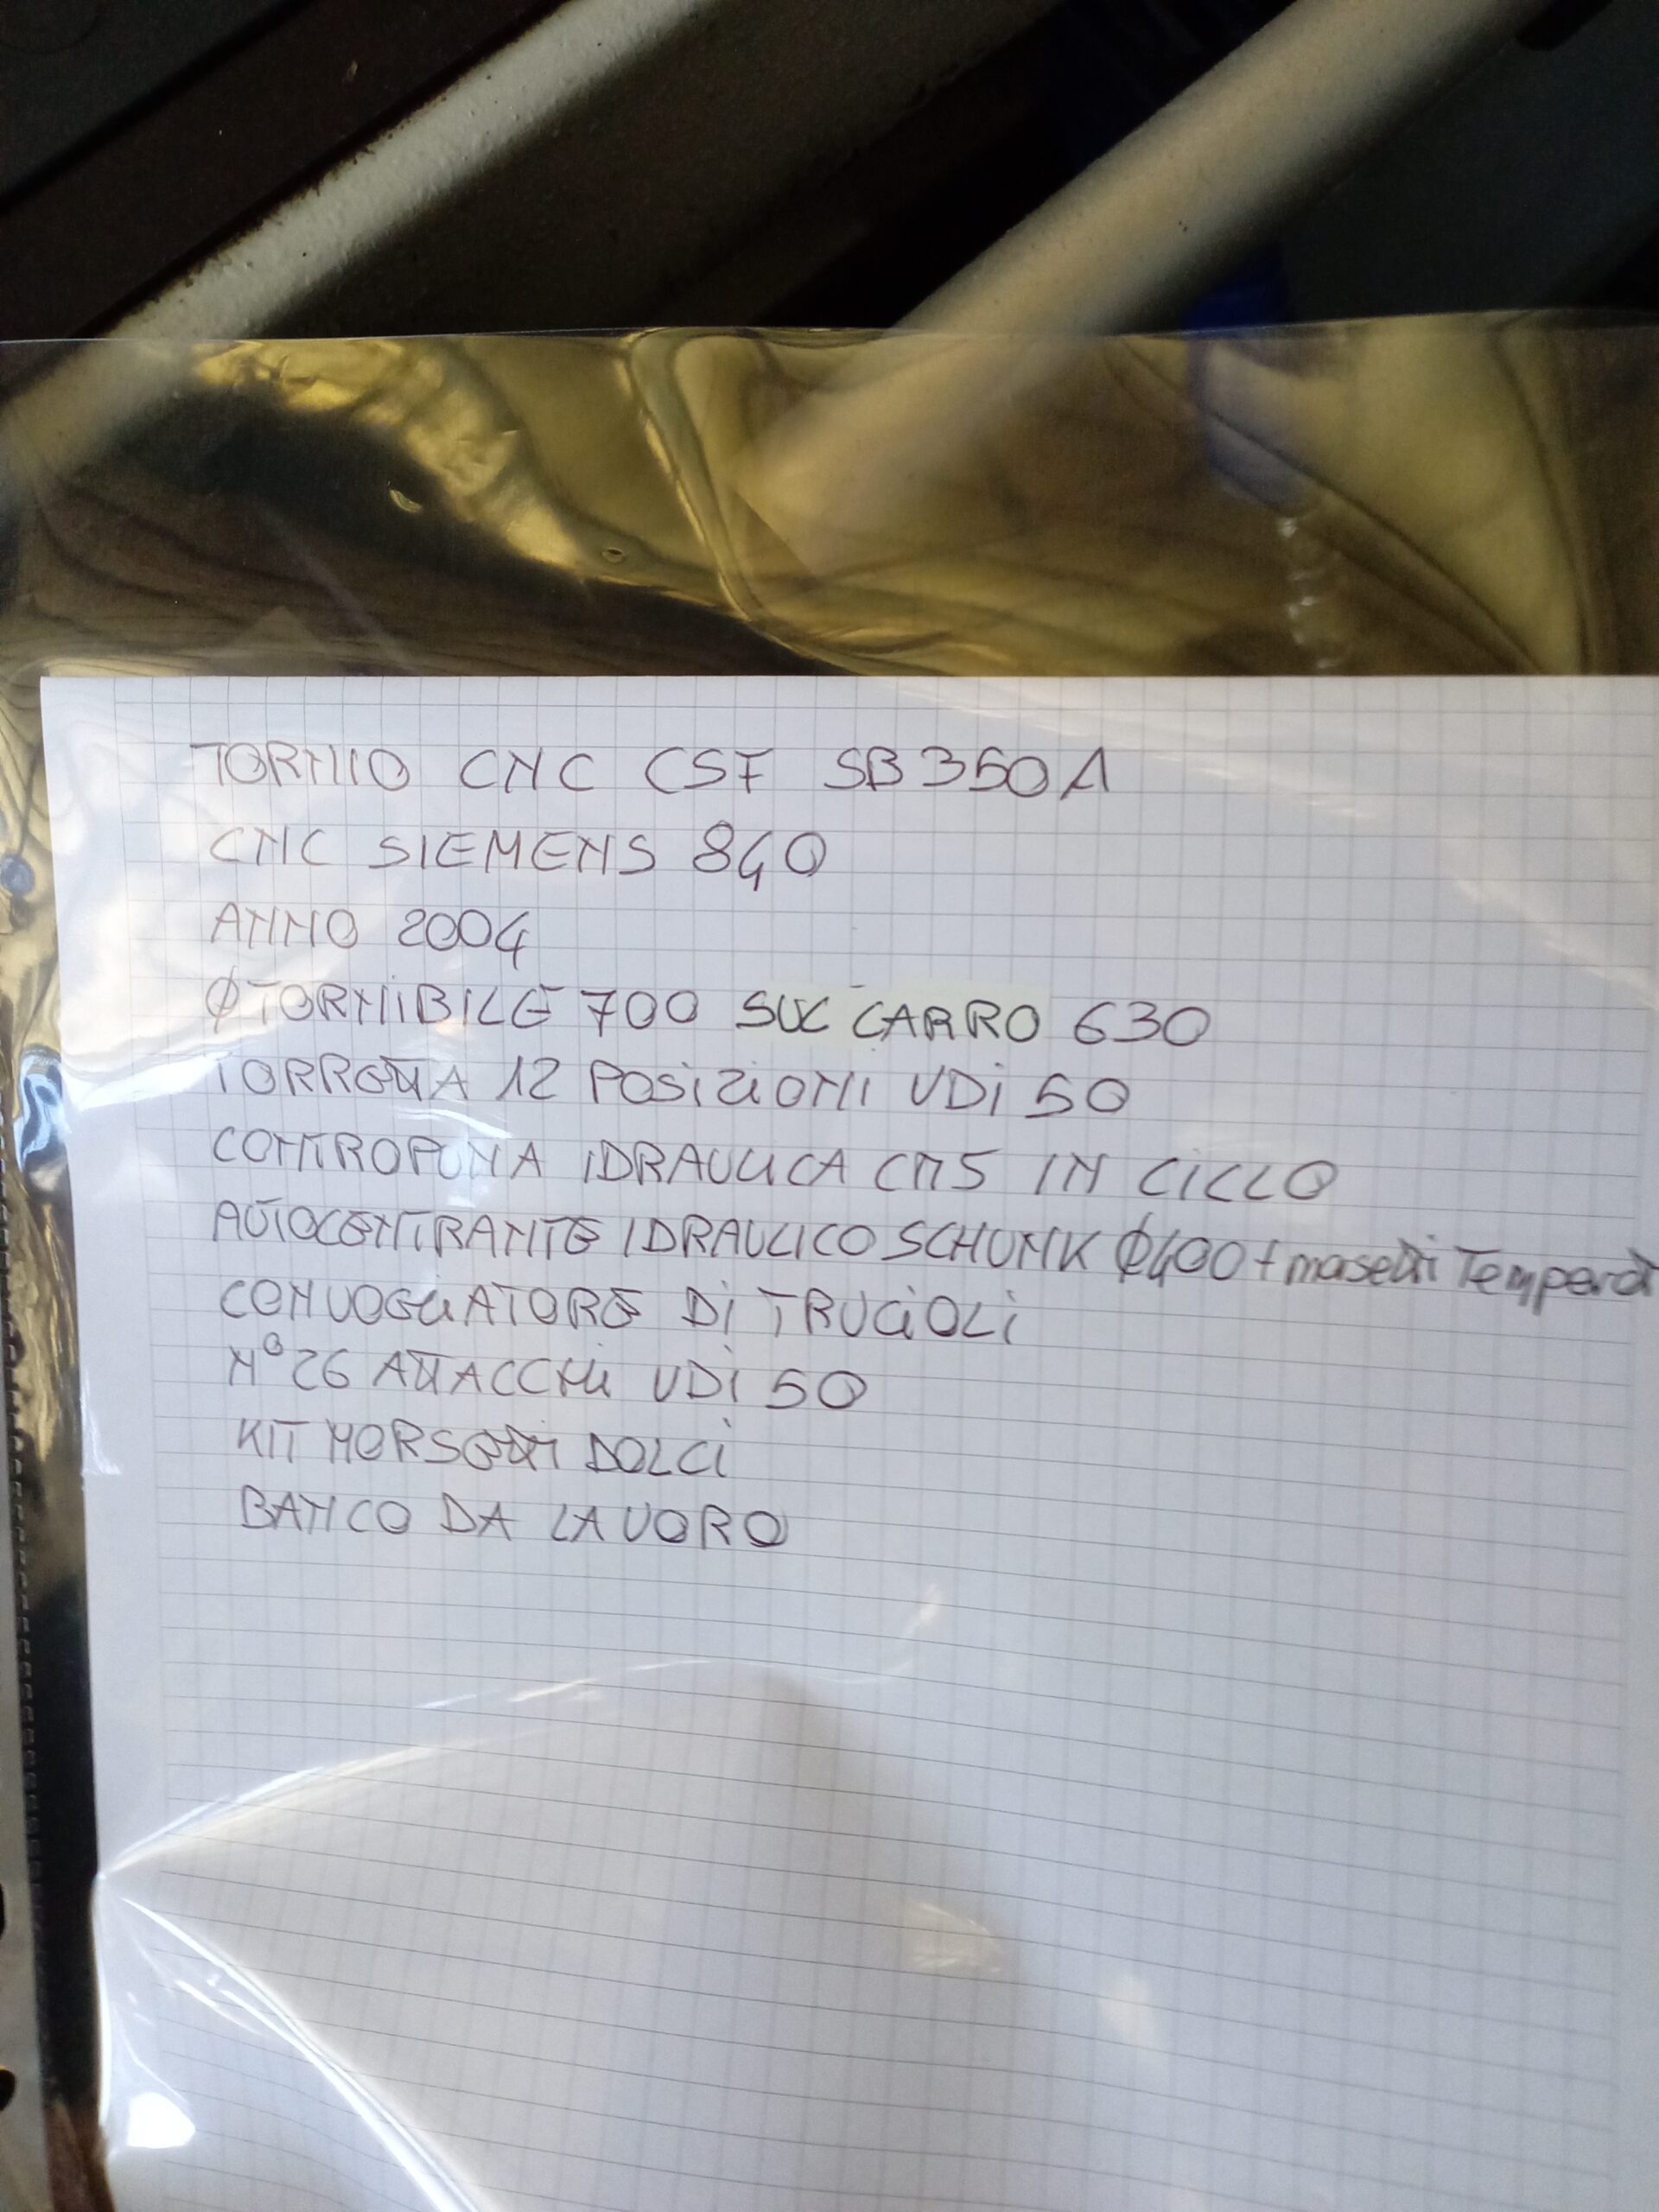 TORNIO CNC CSF SB350A
CNC SIEMENS 840
ANNO 2004
ØTORNIBILE 700 SUL CARRO 630
TORRETTA 12 POSIZIONI VDI 50
CONTROPUNTA IDRAULICA CM5 IN CICLO
AUTOCENTRANTE IDRAULICO SCHUNK Ø400 + morsetti Temperati
CONVOGLIATORE DI TRUCIOLI
N° 26 ATTACCHI VDI 50
KIT MORSETTI DOLCI
BANCO DA LAVORO